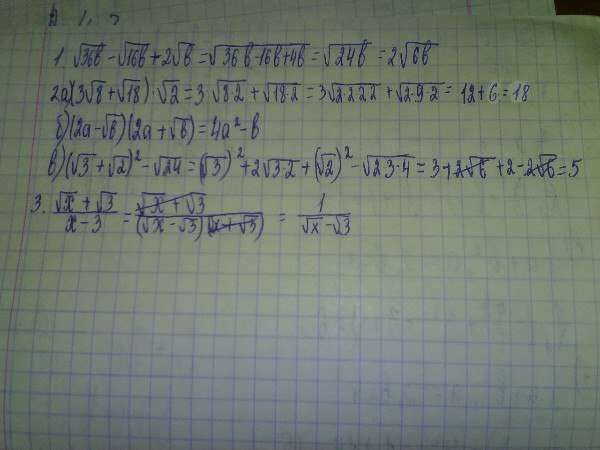 1. √36b - √16b + 2√b = √36b-16b+4b = √24b = 2√6b
2a) (3√8 + √18)·√2 = 3·√8·2 + √18·2 = 3√2·2·2·2 + √2·9·2 = 12 + 6 = 18
б) (2a-√b)(2a+√b) = 4a² - b
в) (√3 + √2)² - √24 = (√3)² + 2√3·2 + (√2)² - √2·3·4 = 3 + 2√6 + 2 - 2√6 = 5
3. √x + √3 / x - 3 = √x + √3 / (√x - √3)(√x + √3) = 1 / √x - √3